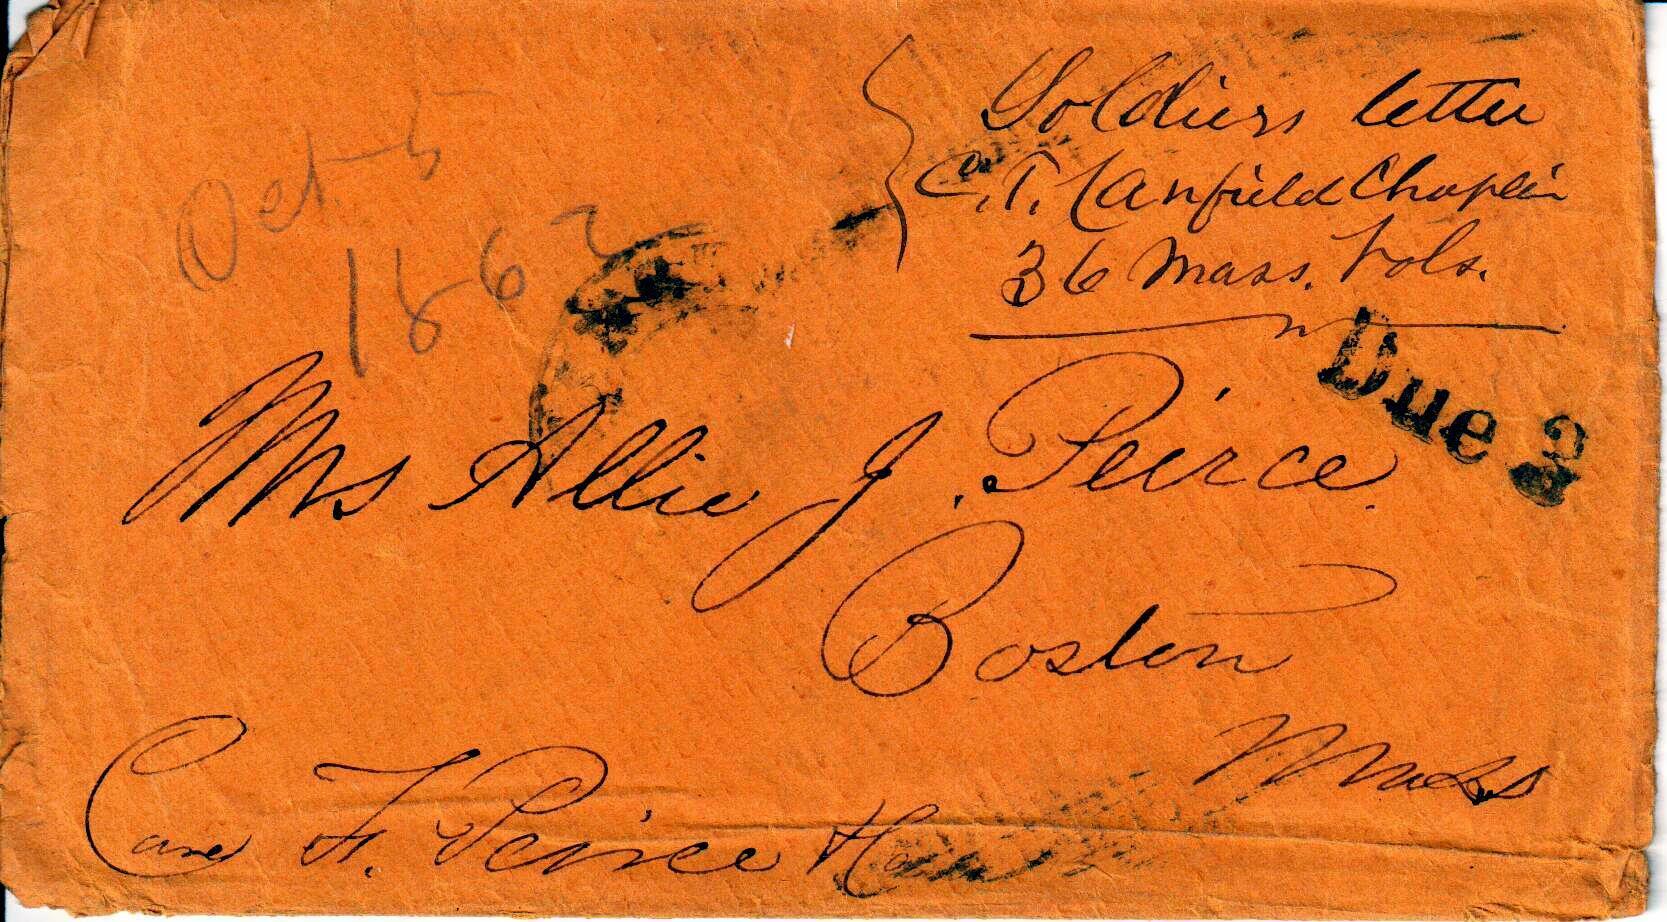 Soldiers letter
C. T. Canfield Chaplin
36 Mass. Vols.
Oct 5
1862
Due 3
Mrs Allie J. Peirce.
Boston
Mass
Care F. Peirce